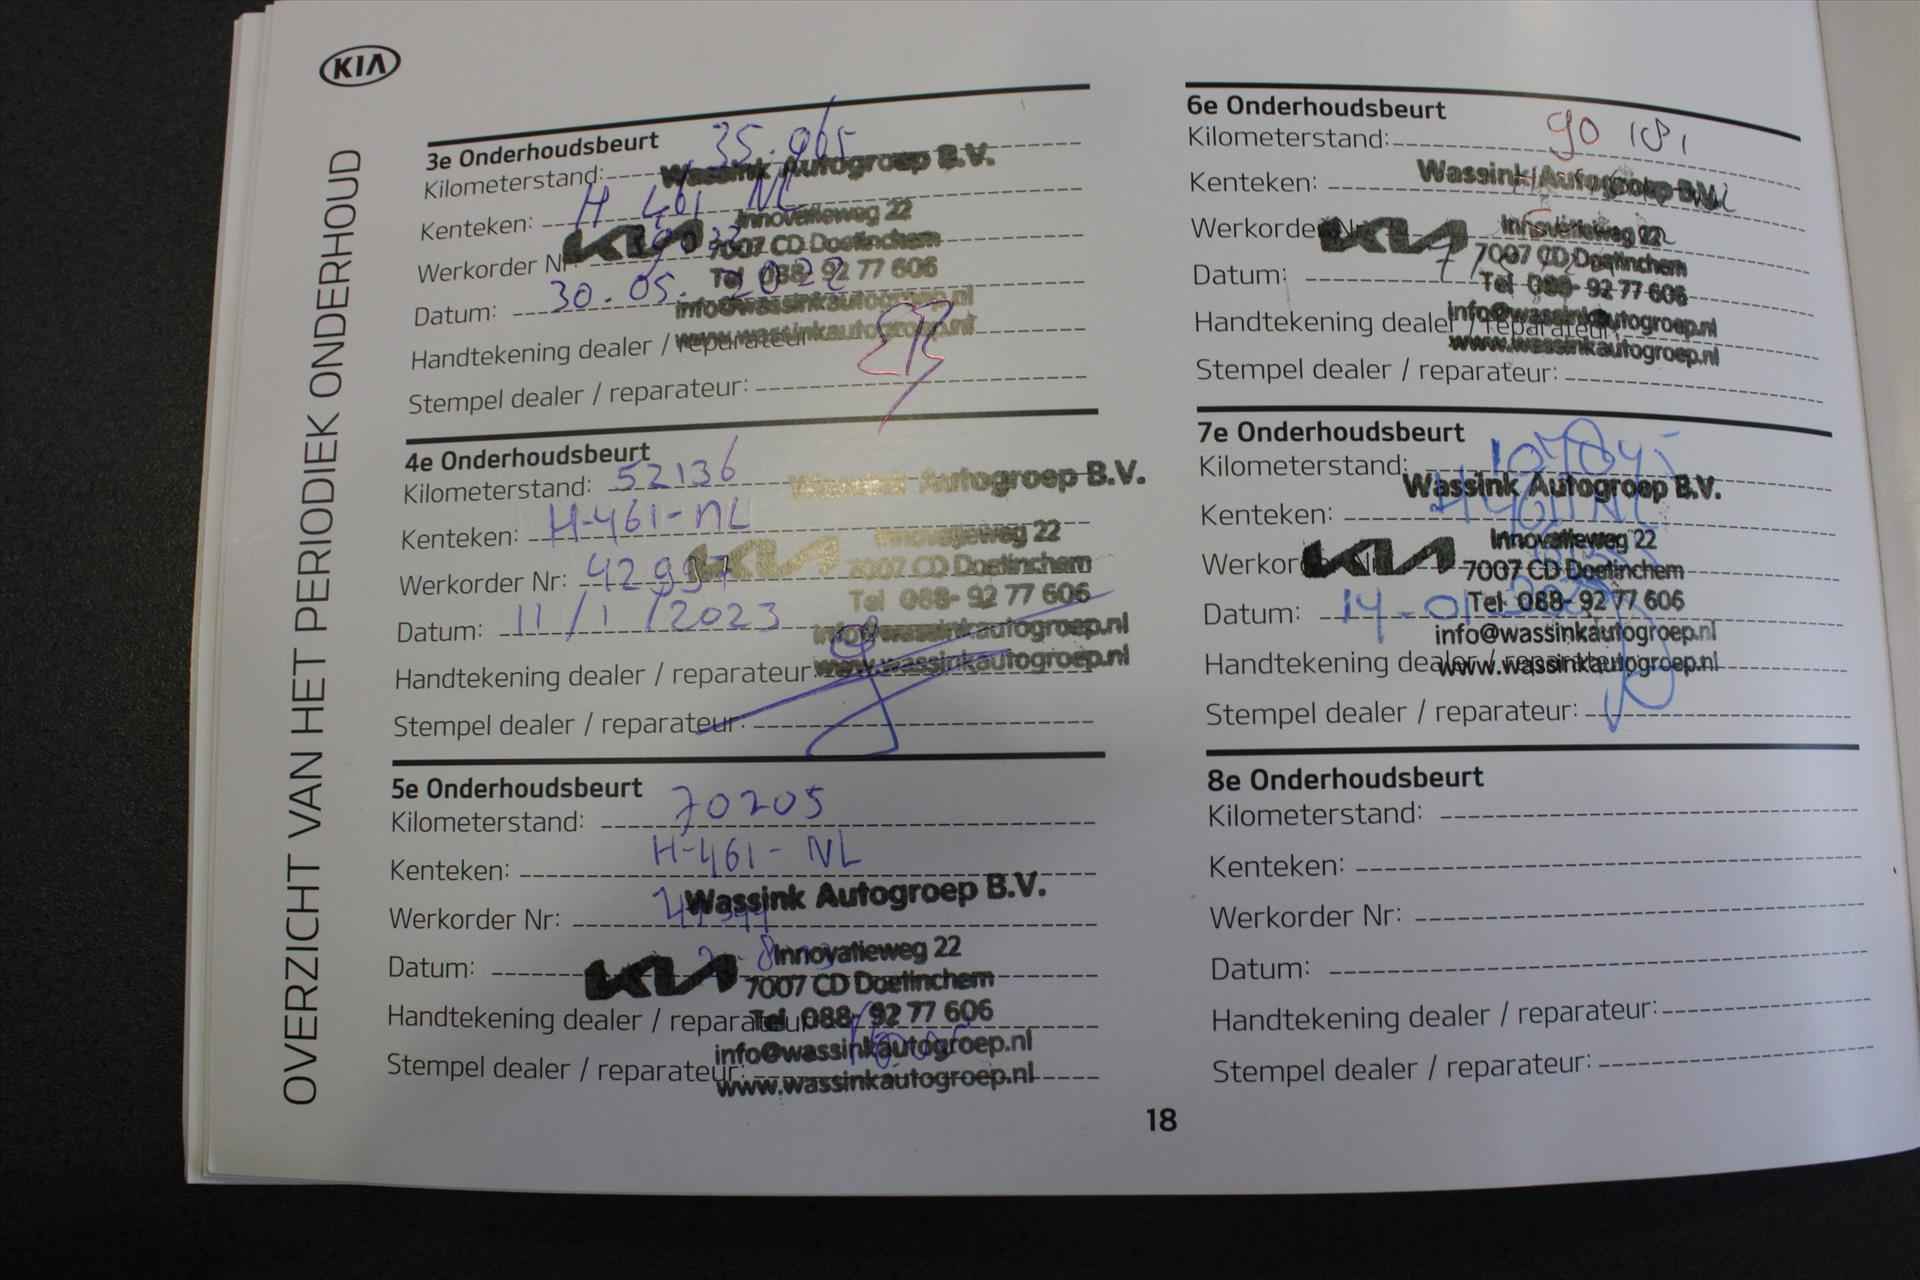 KIA
OVERZICHT VAN HET PERIODIEK ONDERHOUD
3e Onderhoudsbeurt
Kilometerstand: 35.965
Wassink Autogroep B.V.
Kenteken: H 461 NL
KIA
Innovatieweg 22
Werkorder Nr:
7007 CD Doetinchem
Tel 088- 92 77 606
Datum: 30.05.2022
info@wassinkautogroep.nl
www.wassinkautogroep.nl
Handtekening dealer / reparateur
Stempel dealer / reparateur:
4e Onderhoudsbeurt
Kilometerstand: 52136
Wassink Autogroep B.V.
Kenteken: H-461-NL
KIA
Innovatieweg 22
Werkorder Nr: 42997
7007 CD Doetinchem
Tel 088- 92 77 606
Datum: 11/1/2023
info@wassinkautogroep.nl
www.wassinkautogroep.nl
Handtekening dealer / reparateur:
Stempel dealer / reparateur:
5e Onderhoudsbeurt
Kilometerstand: 70205
Kenteken: H-461-NL
Wassink Autogroep B.V.
Werkorder Nr:
KIA
Innovatieweg 22
Datum:
7007 CD Doetinchem
Tel 088- 92 77 606
Handtekening dealer / reparateur
info@wassinkautogroep.nl
Stempel dealer / reparateur:
www.wassinkautogroep.nl
6e Onderhoudsbeurt
Kilometerstand: 90 181
Wassink Autogroep B.V.
Kenteken:
KIA
Innovatieweg 22
Werkorder Nr
7007 CD Doetinchem
Datum:
Tel 088- 92 77 606
info@wassinkautogroep.nl
Handtekening dealer / reparateur:
www.wassinkautogroep.nl
Stempel dealer / reparateur:
7e Onderhoudsbeurt
Kilometerstand:
Wassink Autogroep B.V.
Kenteken: H461NL
KIA
Innovatieweg 22
7007 CD Doetinchem
Datum: 14-01
Tel 088- 92 77 606
info@wassinkautogroep.nl
Handtekening dealer / reparateur
www.wassinkautogroep.nl
Stempel dealer / reparateur:
8e Onderhoudsbeurt
Kilometerstand:
Kenteken:
Werkorder Nr:
Datum:
Handtekening dealer / reparateur:
Stempel dealer / reparateur:
18